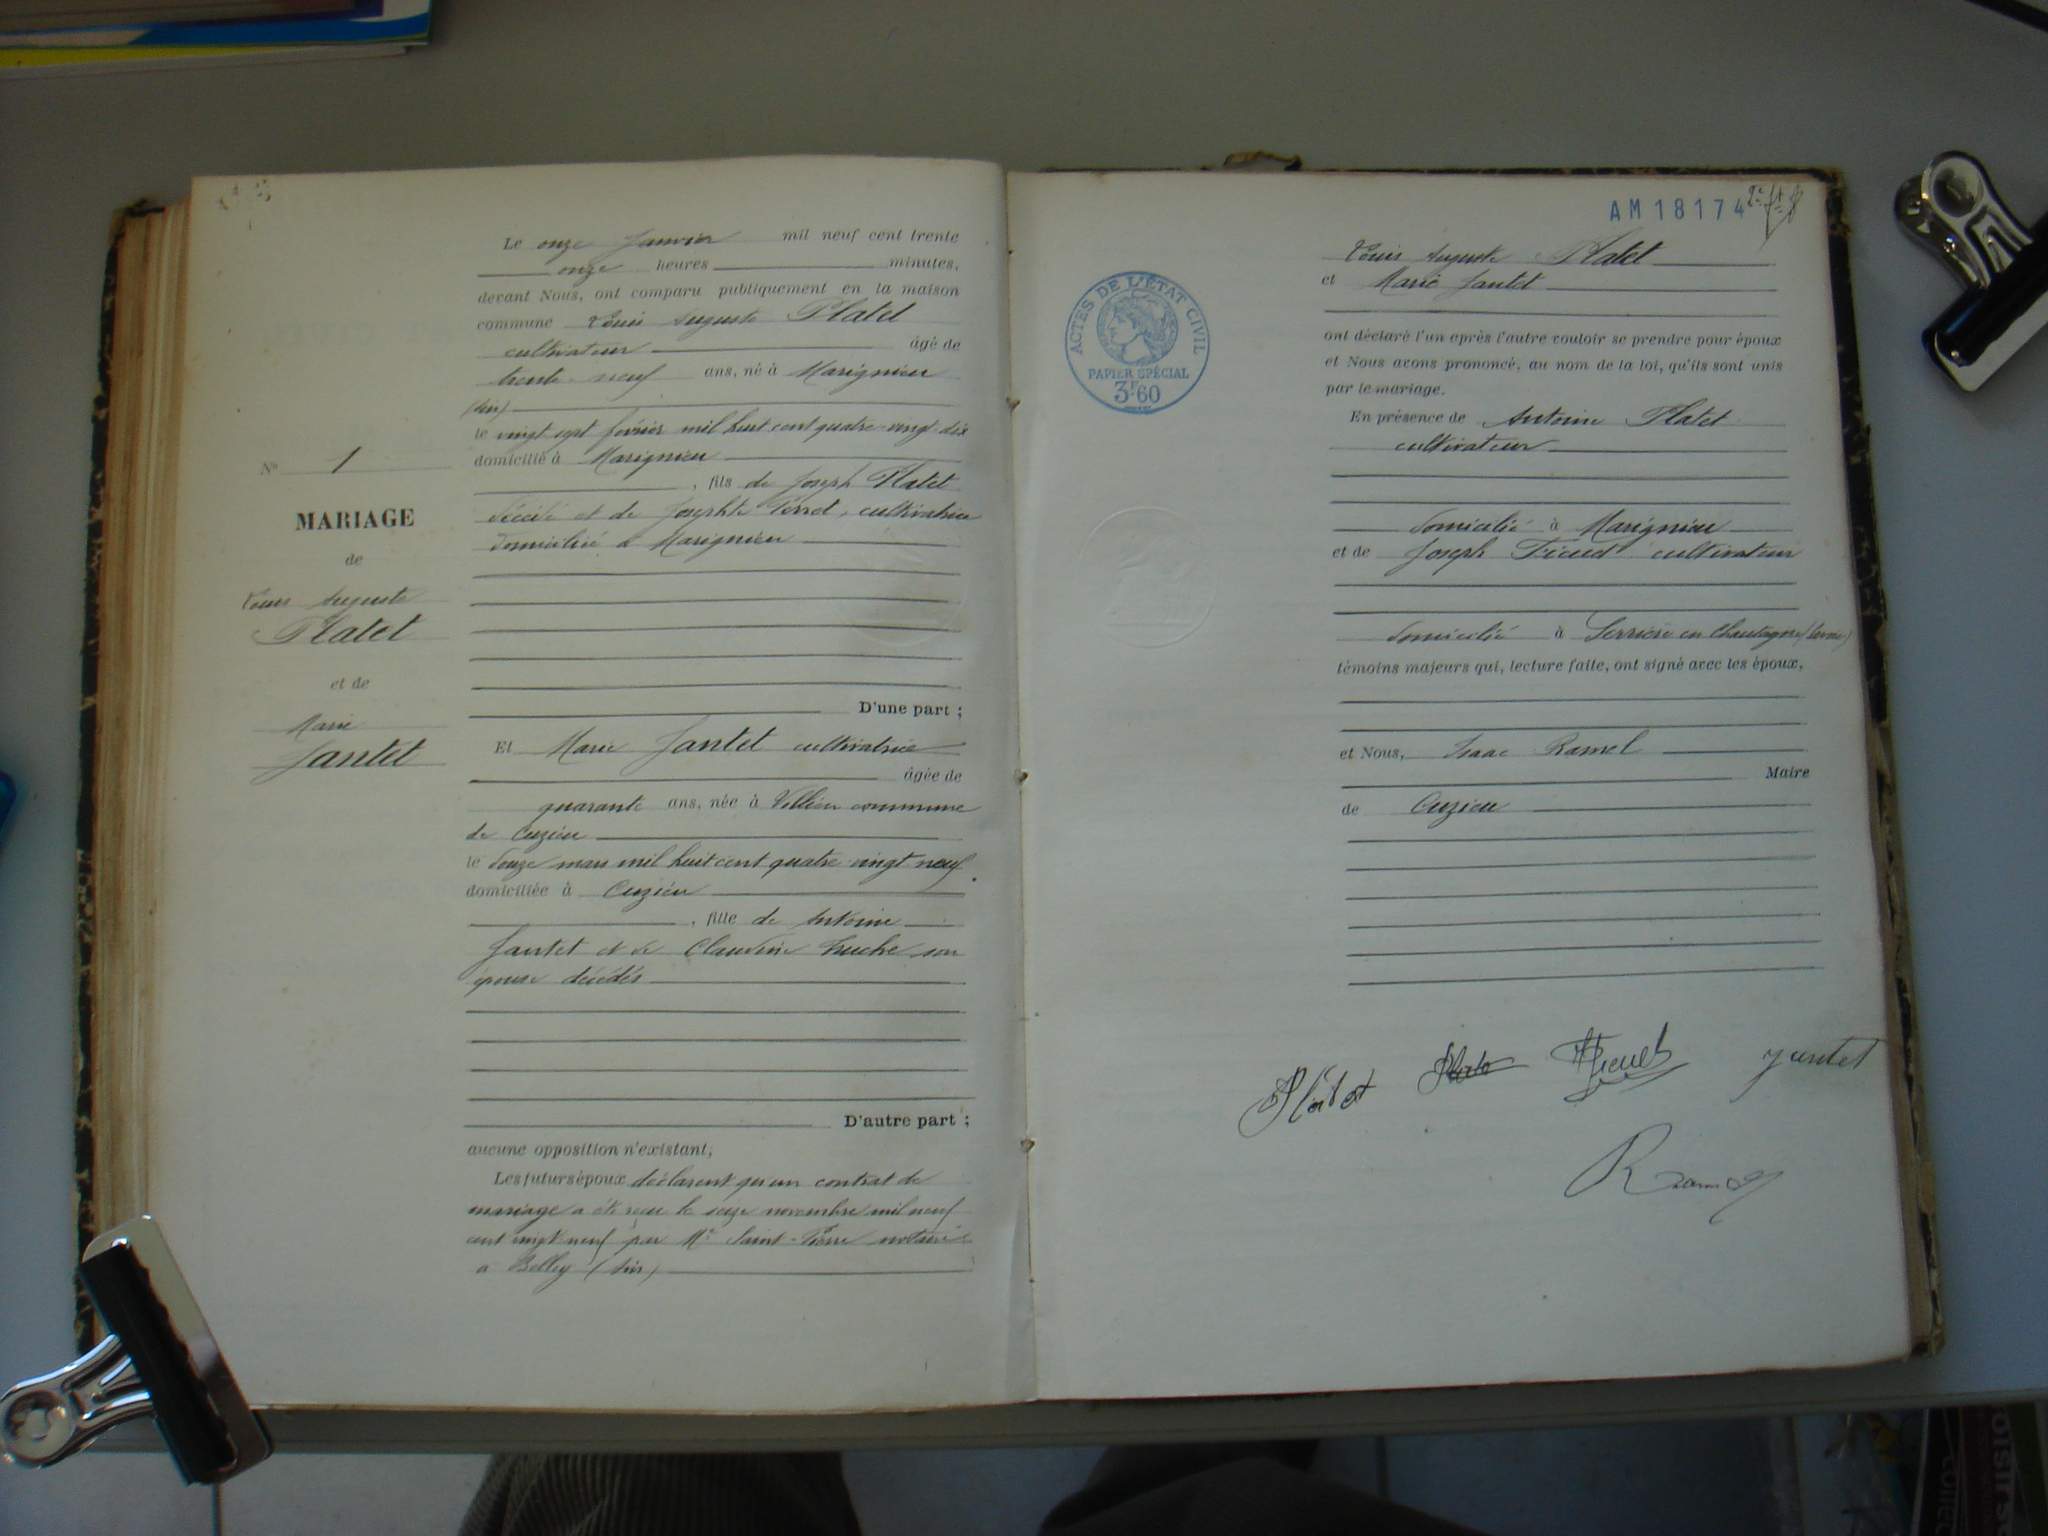 Le onze Janvier mil neuf cent trente
onze heures minutes,
devant Nous, ont comparu publiquement en la maison
commune Louis Auguste Platet
cultivateur âgé de
trente-neuf ans, né à Marignieu
(Ain)
le vingt sept février mil huit cent quatre-vingt-dix
domicilié à Marignieu
, fils de Joseph Platet
décédé et de Josephte Perret, cultivatrice
domiciliée à Marignieu
D'une part ;
N° 1
MARIAGE
de
Louis Auguste
Platet
et de
Marie
Jantet
Et Marie Jantet cultivatrice
âgée de
quarante ans, née à Villieu commune
de Cuzieu
le douze mars mil huit cent quatre vingt neuf
domiciliée à Cuzieu
, fille de Antoine
Jantet et de Claudine Truche son
épouse décédés
D'autre part ;
aucune opposition n'existant,
Les futurs époux déclarent qu'un contrat de
mariage a été reçu le seize novembre mil neuf
cent vingt neuf par Me Saint-Pierre notaire
à Belley (Ain)
AM18174
ACTES DE L'ÉTAT CIVIL
PAPIER SPÉCIAL
3F60
Louis Auguste Platet
et Marie Jantet
ont déclaré l'un après l'autre vouloir se prendre pour époux
et Nous avons prononcé, au nom de la loi, qu'ils sont unis
par le mariage.
En présence de Antoine Platet
cultivateur
domicilié à Marignieu
et de Joseph cultivateur
domicilié à Serrière en Chautagne (Savoie)
témoins majeurs qui, lecture faite, ont signé avec les époux,
et Nous, Isaac Ramel
Maire
de Cuzieu
Platet Jantet
Ramel